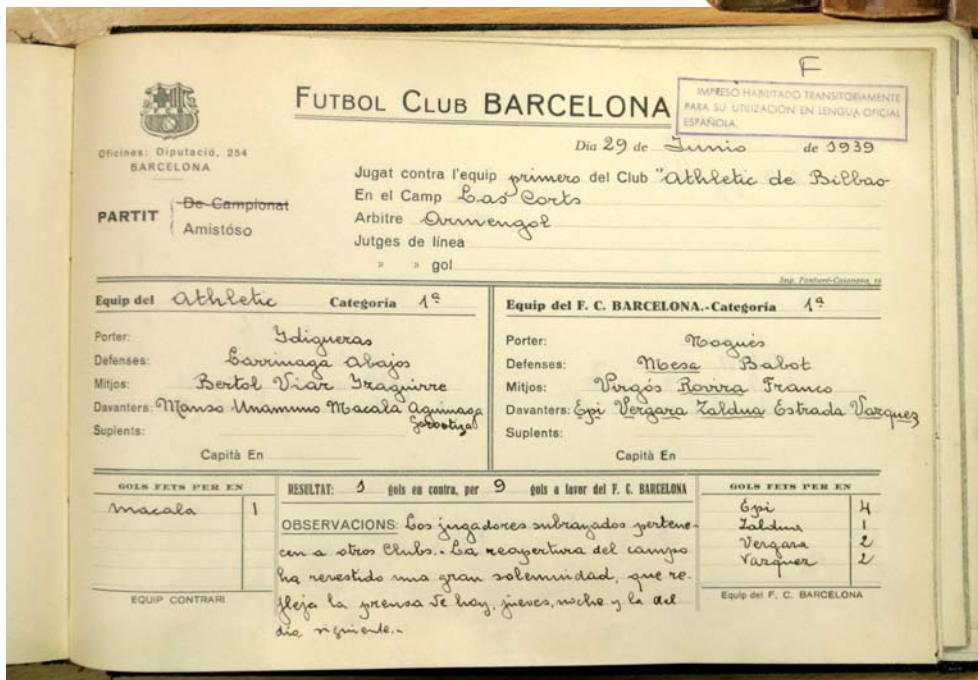 F
FUTBOL CLUB BARCELONA
IMPRESO HABILITADO TRANSITORIAMENTE
PARA SU UTILIZACIÓN EN LENGUA OFICIAL
ESPAÑOLA.
Oficines: Diputació, 254
BARCELONA
Dia 29 de Junio de 1939
Jugat contra l'equip primero del Club "Athletic de Bilbao
En el Camp Las Corts
PARTIT De Campionat
Amistóso
Arbitre Armengol
Jutges de línea
» » gol
Equip del Athletic Categoría 1ª
Porter: Idigueras
Defenses: Larrinaga Abajos
Mitjos: Bertol Viar Izaguirre
Davanters: Manso Unamuno Macala Aguinaga
Suplents:
Capità En
Equip del F. C. BARCELONA.-Categoría 1ª
Porter: Nogués
Defenses: Mesa Babot
Mitjos: Virgós Rovira Franco
Davanters: Epi Vergara Zaldua Estrada Vazquez
Suplents:
Capità En
GOLS FETS PER EN
Macala 1
EQUIP CONTRARI
RESULTAT: 1 gols en contra, per 9 gols a favor del F. C. BARCELONA
OBSERVACIONS: Los jugadores subrayados pertene-
cen a otros Clubs.- La reapertura del campo
ha revestido una gran solemnidad, que re-
fleja la prensa de hoy, jueves, noche y la del
dia siguiente.-
GOLS FETS PER EN
Epi 4
Zaldua 1
Vergara 2
Vazquez 2
Equip del F. C. BARCELONA